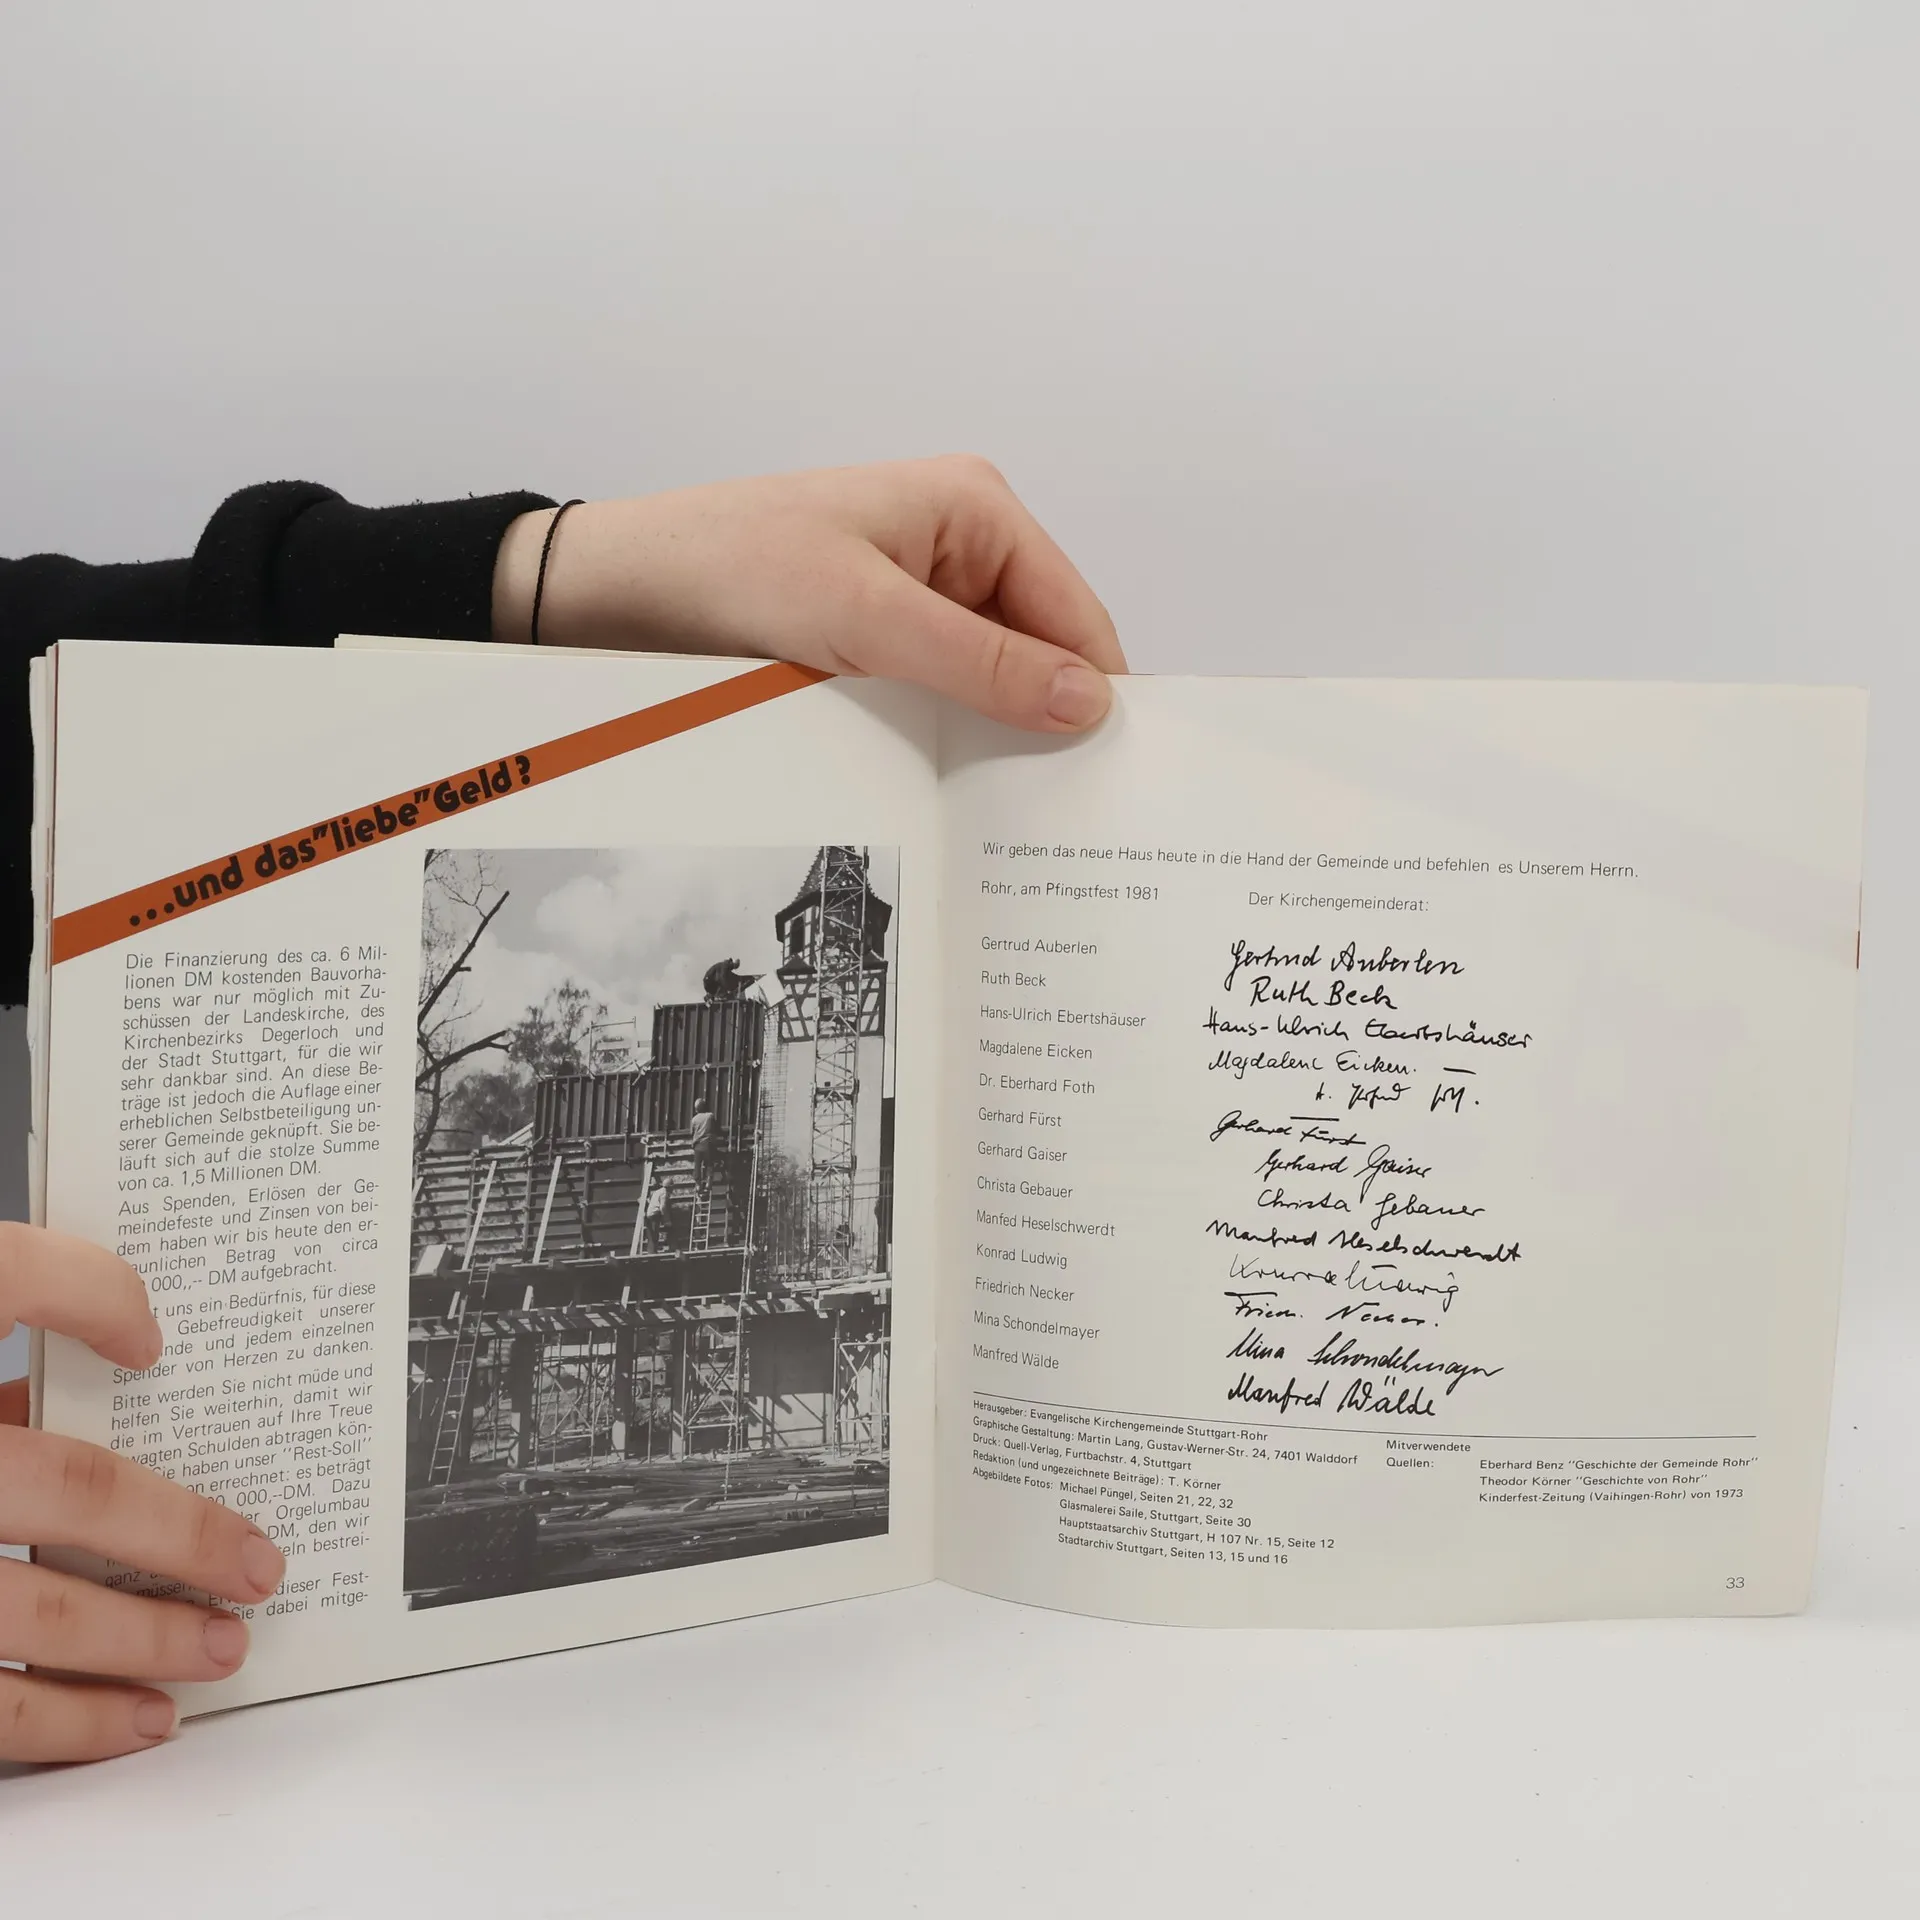 ...und das"liebe"Geld?
Die Finanzierung des ca. 6 Mil-
lionen DM kostenden Bauvorha-
bens war nur möglich mit Zu-
schüssen der Landeskirche, des
Kirchenbezirks Degerloch und
der Stadt Stuttgart, für die wir
sehr dankbar sind. An diese Be-
träge ist jedoch die Auflage einer
erheblichen Selbstbeteiligung un-
serer Gemeinde geknüpft. Sie be-
läuft sich auf die stolze Summe
von ca. 1,5 Millionen DM.
Aus Spenden, Erlösen der Ge-
meindefeste und Zinsen von bei-
dem haben wir bis heute den er-
aunlichen Betrag von circa
000,,-- DM aufgebracht.
t uns ein Bedürfnis, für diese
Gebefreudigkeit unserer
inde und jedem einzelnen
Spender von Herzen zu danken.
Bitte werden Sie nicht müde und
helfen Sie weiterhin, damit wir
die im Vertrauen auf Ihre Treue
wagten Schulden abtragen kön-
ie haben unser "Rest-Soll"
on errechnet: es beträgt
000,--DM. Dazu
er Orgelumbau
DM, den wir
teln bestrei-
ganz
müssen
dieser Fest-
Sie dabei mitge-
Wir geben das neue Haus heute in die Hand der Gemeinde und befehlen es Unserem Herrn.
Rohr, am Pfingstfest 1981 Der Kirchengemeinderat:
Gertrud Auberlen Gertrud Auberlen
Ruth Beck Ruth Beck
Hans-Ulrich Ebertshäuser Hans-Ulrich Ebertshäuser
Magdalene Eicken Magdalene Eicken.
Dr. Eberhard Foth
Gerhard Fürst Gerhard Fürst
Gerhard Gaiser Gerhard Gaiser
Christa Gebauer Christa Gebauer
Manfed Heselschwerdt Manfred Heselschwerdt
Konrad Ludwig Konrad Ludwig
Friedrich Necker Friedr. Necker.
Mina Schondelmayer Mina Schondelmayer
Manfred Wälde Manfred Wälde
Herausgeber: Evangelische Kirchengemeinde Stuttgart-Rohr
Graphische Gestaltung: Martin Lang, Gustav-Werner-Str. 24, 7401 Walddorf
Druck: Quell-Verlag, Furtbachstr. 4, Stuttgart
Redaktion (und ungezeichnete Beiträge): T. Körner
Abgebildete Fotos: Michael Püngel, Seiten 21, 22, 32
Glasmalerei Saile, Stuttgart, Seite 30
Hauptstaatsarchiv Stuttgart, H 107 Nr. 15, Seite 12
Stadtarchiv Stuttgart, Seiten 13, 15 und 16
Mitverwendete
Quellen: Eberhard Benz "Geschichte der Gemeinde Rohr"
Theodor Körner "Geschichte von Rohr"
Kinderfest-Zeitung (Vaihingen-Rohr) von 1973
33